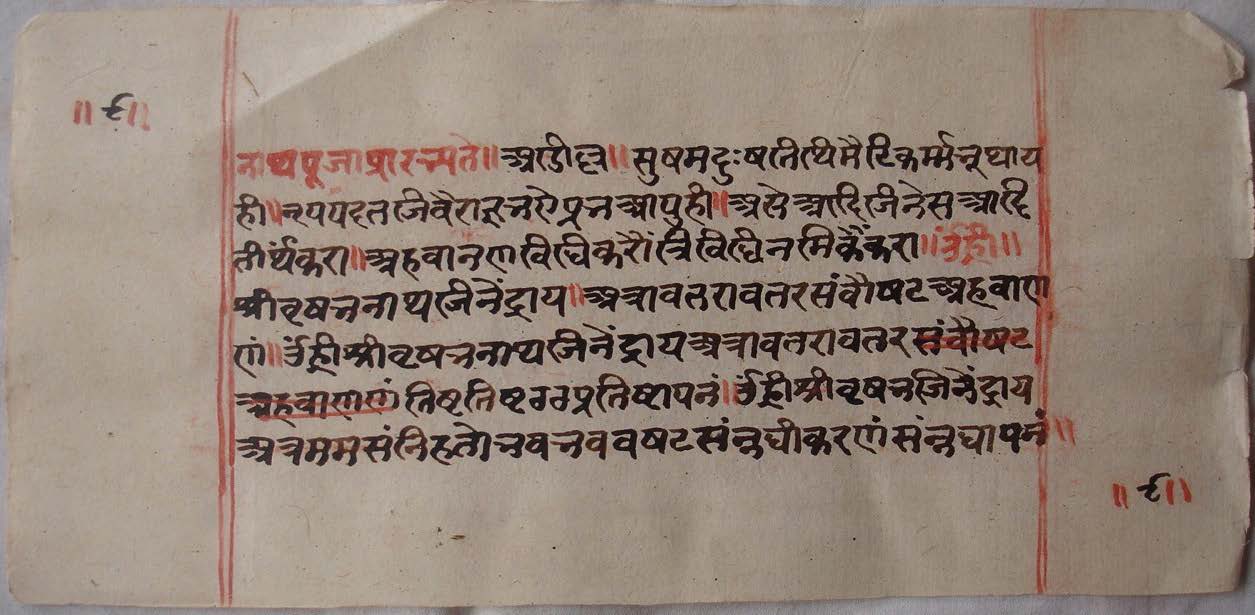 ॥ ९ ॥
नाथपूजाप्रारभ्यते ॥ अडील्ल ॥ सुषमदुःषतीथिमै टिकर्म्मनूथाय
ही ॥ नृपपदतजिवैराज्ञनऐप्रभआपुही ॥ असे आदिजिनेस आदि
तीर्थंकरा ॥ अहवाननणविधिकरौं त्रिविधिनमिकैंकरा ॥ ॐ ह्री ॥
श्रीवृषभनाथजिनेंद्राय ॥ अत्रावतरावतरसंवौषट अहवाण
णं ॥ ॐ ह्री श्रीवृषभनाथजिनेंद्राय अत्रावतरावतर संवौषट
अहवाणणं तिष्टतिष्टठठप्रतिष्टापनं । ॐ ह्री श्रीवृषभजिनेंद्राय
अत्रममसंनिहतोभवभववषटसंन्नधीकरणं संन्नधापनं ॥
॥ ९ ॥